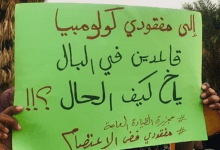 إلى مفقودي كولومبيا
قاعدين في البال
ياخ كيف الحال ؟!!
# مجزرة القيادة العامة
# مفقودي فض الاعتصام